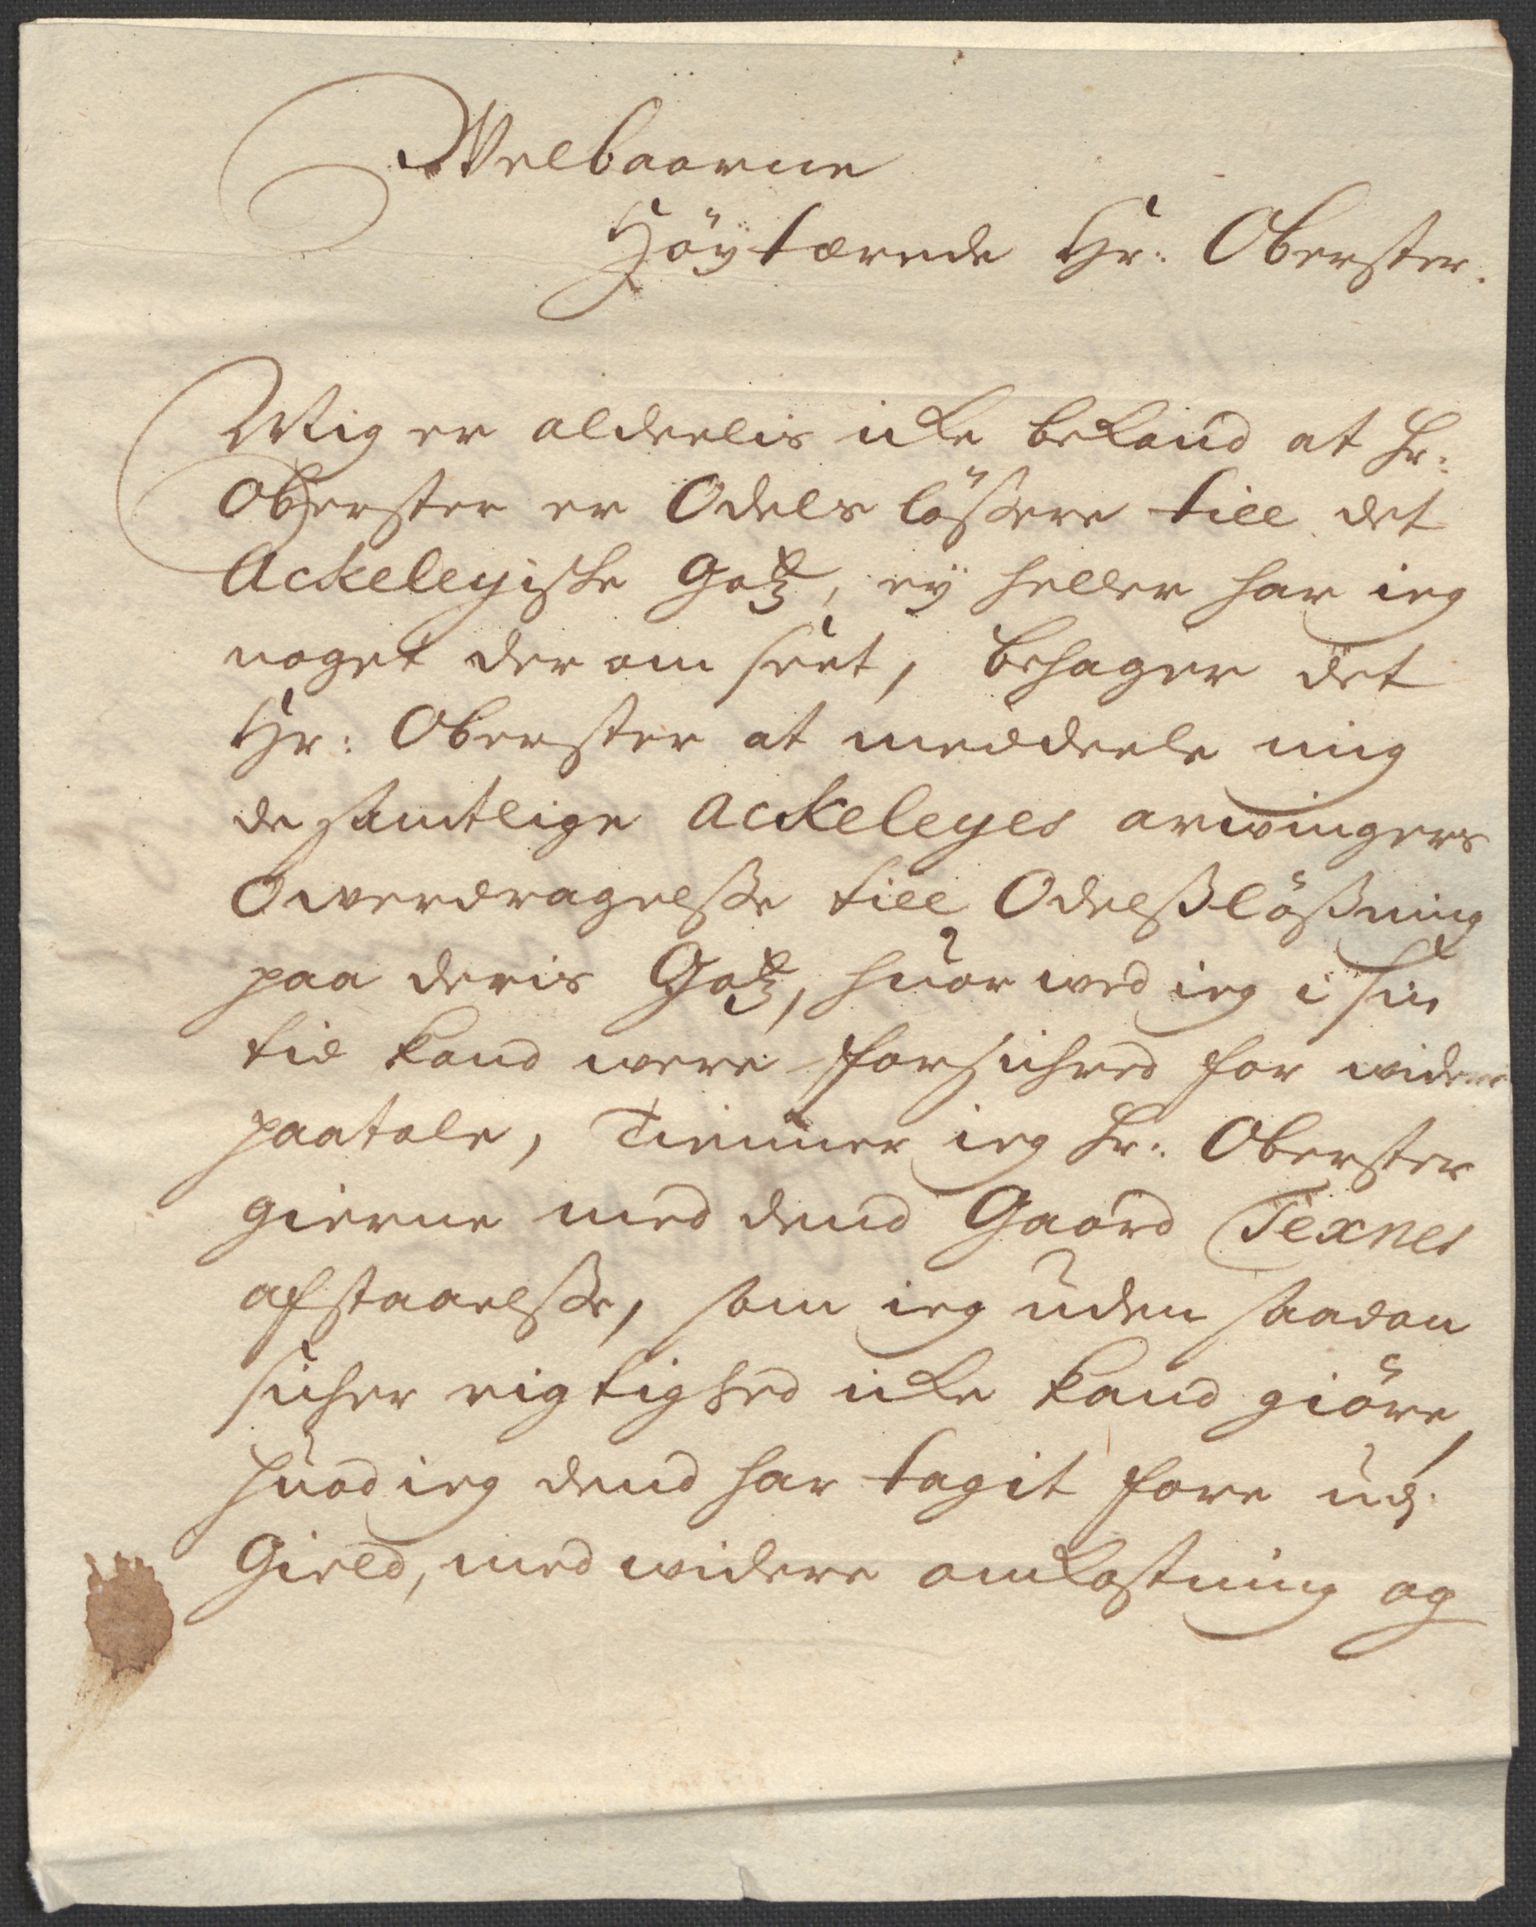 Welbaarne
Höytærede Hr: Oberster.
Mig er alderlis icke bekand at Hr:
Oberster er Odels lössere till det
Ackeleyiske Gotz, ey heller har ieg
noget der om seet, behager det
Hr: Oberster at meddeele mig
de samtlige Ackeleyes arwingers
Owerdragelsse till Odelsslössning
paa deris Gotz, huor wed ieg i sin
tid kand were forsichred for widere
paatale, Tienner ieg Hr: Oberster
gierne med dend Gaard Texnes
afstaaelsse, som ieg uden saadan
sicher rigtighed icke kand giöre,
huad ieg dend har tagit fore ud
Gield, med widere omkostning og